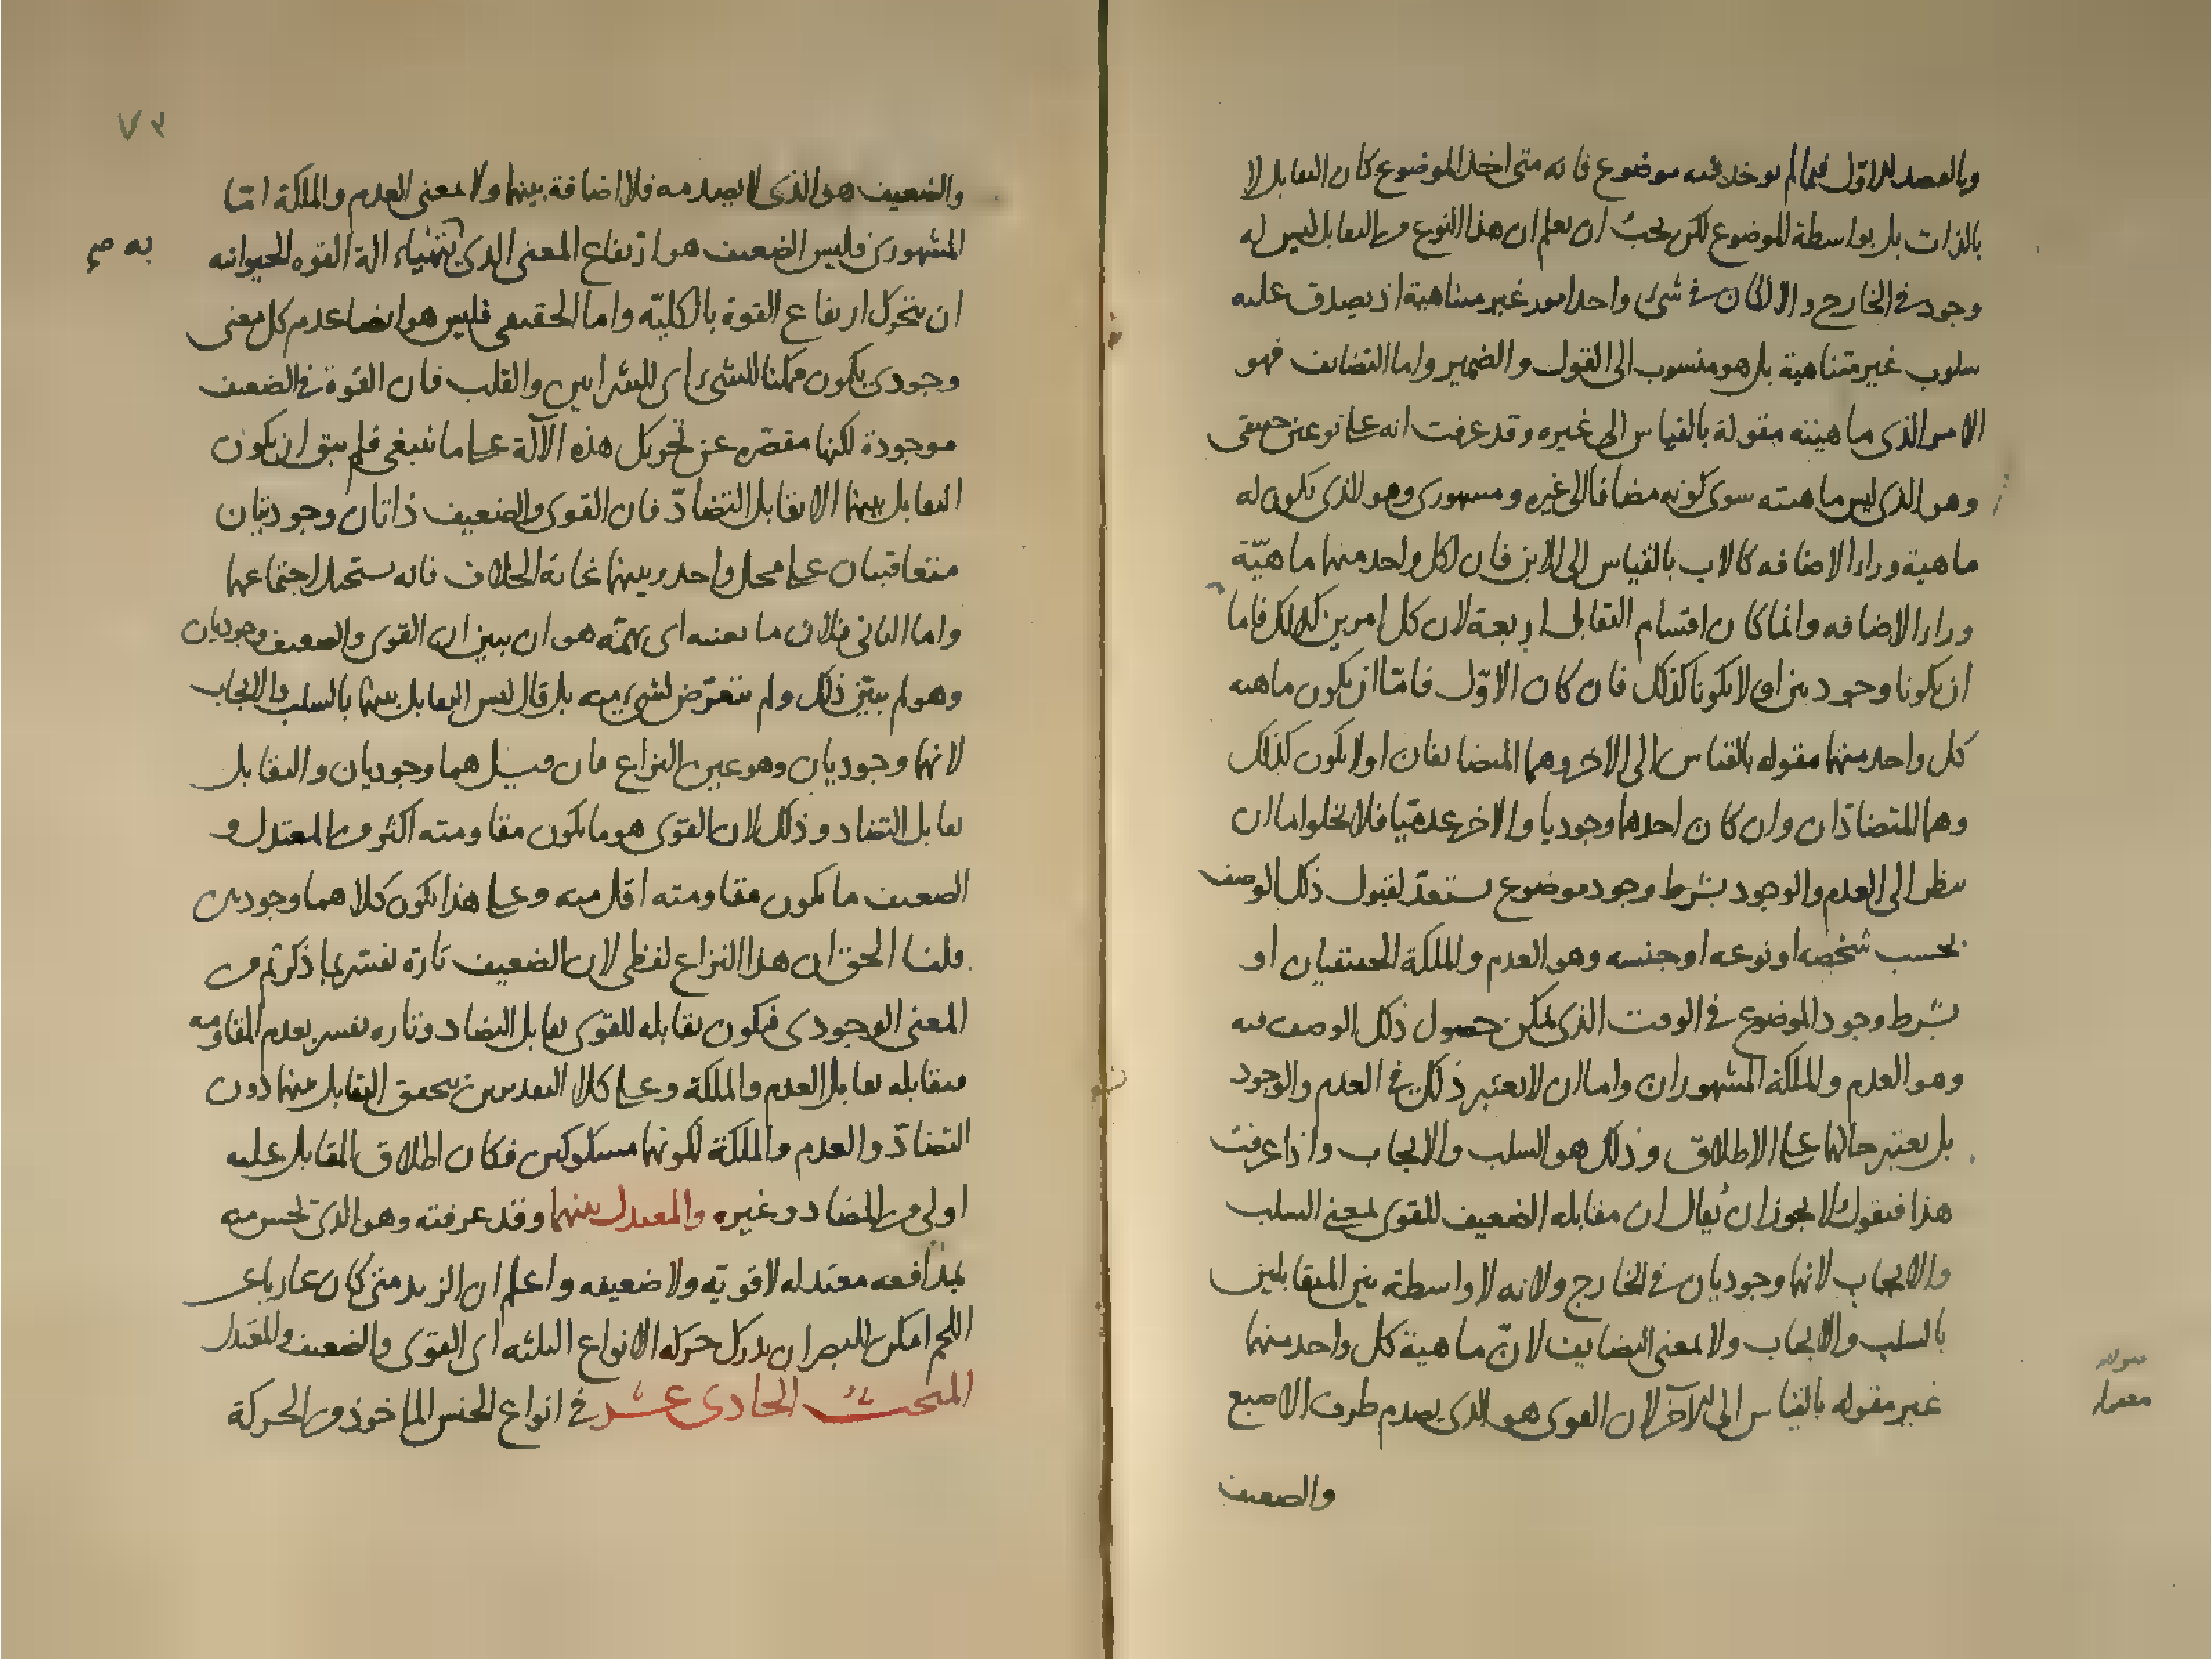 وبالقصد الاول فيما لم يوخذ فيه موضوع فانه متى اخذ الموضوع كان التقابل لا
بالذات بل بواسطة الموضوع لكن يجب ان يعلم ان هذا النوع من التقابل ليس له
وجود في الخارج والا لكان في شئ واحد امور غير متناهية اذ يصدق عليه
سلوب غير متناهية بل هو منسوب الى القول والضمير واما التضايف فهو
الامر الذى ماهيته مقولة بالقياس الى غيره وقد عرفت انه على نوعين حقيقى
وهو الذى ليس ماهيته سوى كونه مضافا الى غيره ومشهورى وهو الذى يكون له
ماهية وراء الاضافه كالاب بالقياس الى الابن فان لكل واحد منهما ماهيّة
وراء الاضافه وانما كان اقسام التقابل اربعة لان كل امرين كذلك فاما
ان يكونا وجوديين او لا يكونا كذلك فان كان الاوّل فامّا ان يكون ماهيه
كل واحد منهما مقوله بالقياس الى الاخر وهما المتضايفان او لا يكون كذلك
وهما المتضادّان وان كان احدهما وجوديا والاخر عدميّا فلا يخلوا اما ان
ينظر الى العدم والوجود بشرط وجود موضوع مستعدّ لقبول ذلك الوصف
بحسب شخصه او نوعه او جنسه وهو العدم والملكة الحقيقيان او
بشرط وجود الموضوع في الوقت الذى يمكن حصول ذلك الوصف فيه
وهو العدم والملكة المشهوران واما ان لا يعتبر ذلك في العدم والوجود
بل يعتبر حالهما على الاطلاق وذلك هو السلب والايجاب واذا عرفت
هذا فنقول لا يجوز ان يُقال ان مقابله الضعيف للقوى بمعنى السلب
والايجاب لانهما وجوديان في الخارج ولانه لا واسطة بين المتقابلين
بالسلب والايجاب ولا بمعنى التضايف لانّ ماهية كل واحد منهما
غير مقوله بالقياس الى الآخر لان القوى هو الذى يصدم طرف الاصبع
والضعيف
٧٢
والضعيف هو الذى لا يصدمه فلا اضافة بينهما ولا بمعنى العدم والملكة امّا
المشهورى فليس الضعيف هو ارتفاع المعنى الذى يتهيّاء الة القوه الحيوانيه
به صح
ان يتحرك ارتفاع القوة بالكليّه واما الحقيقى فليس هو ايضا عدم كل معنى
وجودى يكون ممكنا للشئ اى للشرايين والقلب فان القوة في الضعيف
موجودة لكنها مقصّره عن تحريك هذه الآلة على ما ينبغى فلم يبق ان يكون
التقابل بينهما الا تقابل التضادّ فان القوى والضعيف ذاتان وجوديّان
متعاقبتان على محل واحد وبينهما غاية الخلاف فانه يستحيل اجتماعهما
واما الثانى فلان ما يعنيه اى يهمّه هو ان يبين ان القوى والضعيف وجوديان
وهو لم يبيّن ذلك ولم يتعرّض لشئ منه بل قال ليس التقابل بينهما بالسلب والايجاب
لانهما وجوديان وهو عين النزاع فان قيل هما وجوديان والتقابل
تقابل التضاد وذلك لان القوى هو ما يكون مقاومته اكثر من المعتدل و
الضعيف ما يكون مقاومته اقل منه وعلى هذا يكون كلاهما وجوديين
قلنا الحق ان هذا النزاع لفظى لان الضعيف تارة يفسّر بما ذكرتم من
المعنى الوجودى فيكون تقابله للقوى تقابل التضاد وتاره يفسر بعدم المقاومه
فتقابله تقابل العدم والملكة وعلى كلا التقديرين يتحقق التقابل بينهما دون
التضادّ والعدم والملكة لكونهما مشكوكين فكان اطلاق التقابل عليه
اولى من التضاد وغيره والمعتدل بينهما وقد عرفته وهو الذى يحس منه
بمدافعه معتدله لا قويّه ولا ضعيفه واعلم ان الزيد متى كان عاريا عن
اللحم امكن للبصر ان يدرك حركه الانواع الثلثه اى القوى والضعيف والمعتدل
المبحث الحادى عشر في انواع الجنس الماخوذ من الحركة